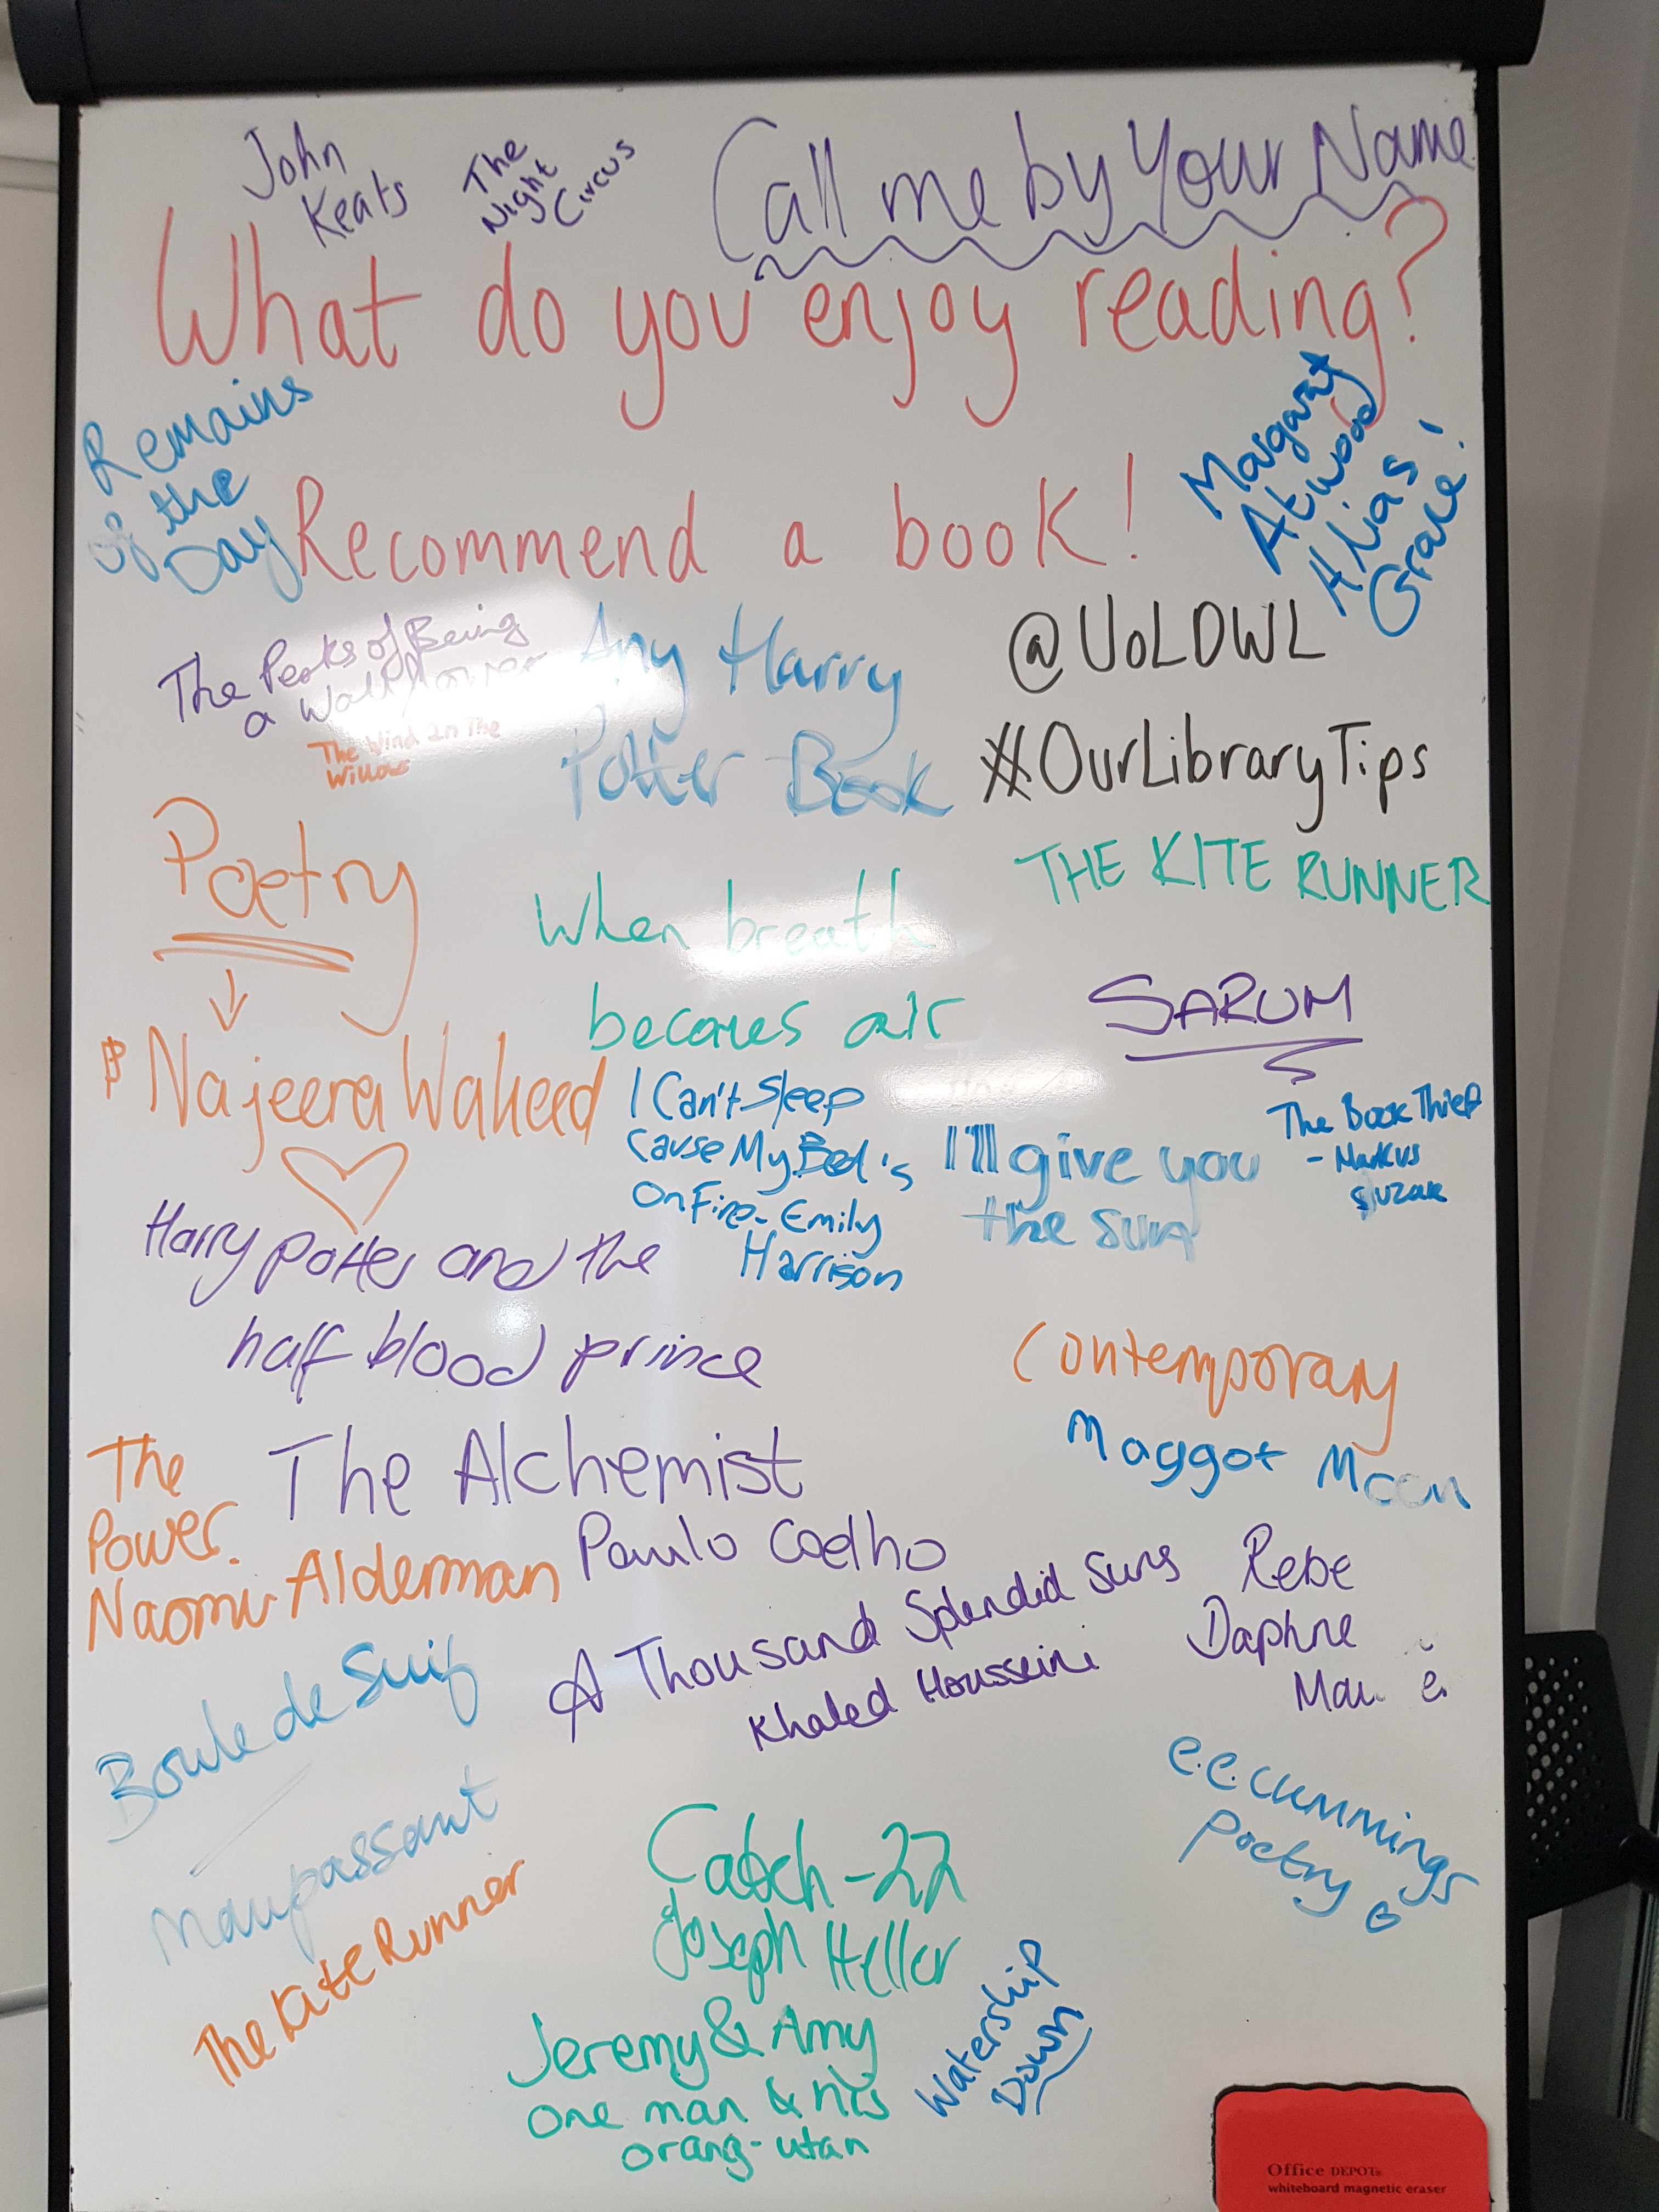 John
Keats
The
Night
Circus
Call me by Your Name
What do you enjoy reading?
Remains
of the
Day
Margaret
Atwood
Alias
Grace!
Recommend a book!
The Perks of Being
a Wallflower
The Wind In The
Willows
Any Harry
Potter Book
@UoLDWL
#OurLibraryTips
THE KITE RUNNER
Poetry
Najeera Waheed
When breath
becomes air
SARUM
I Can't Sleep
Cause My Bed's
On Fire - Emily
Harrison
I'll give you
the sun
The Book Thief
- Markus
Harry potter and the
half blood prince
Contemporary
Maggot Moon
The
Power.
Naomi Alderman
The Alchemist
Paulo Coelho
A Thousand Splendid Suns
Khaled Housseini
Rebe
Daphne
Boule de Suif
Maupassant
The Kite Runner
e.e. cummings
poetry
Catch-22
Joseph Heller
Jeremy & Amy
one man & his
orang-utan
Watership
Down
Office DEPOT
whiteboard magnetic eraser